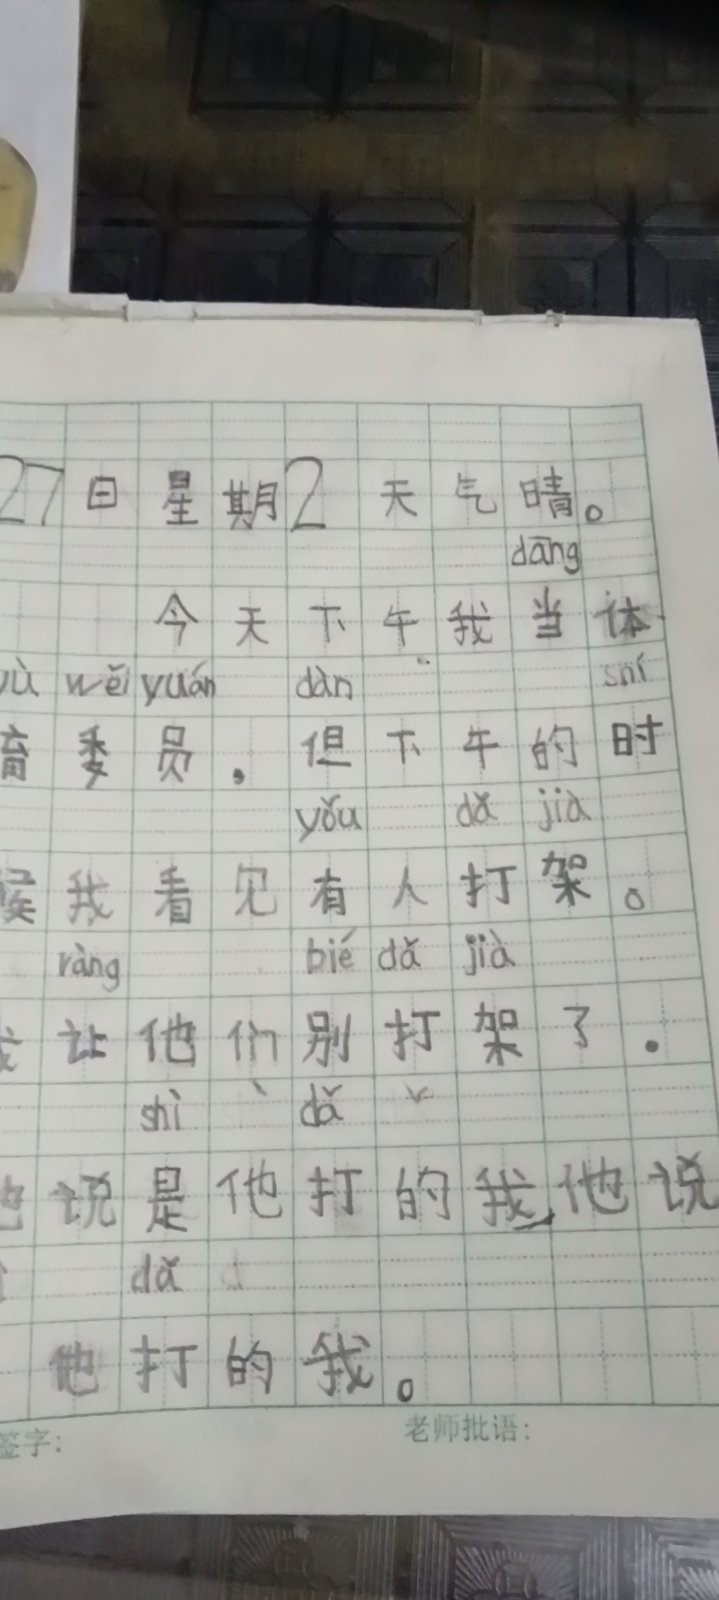 27日星期2天气晴。
dāng
今天下午我当体
wěi yuán dàn shí
育委员.但下午的时
yǒu dǎ jià
候我看见有人打架。
ràng bié dǎ jià
让他们别打架了.
shì dǎ
他说是他打的我,他说
dǎ
他打的我。
签字: 老师批语: